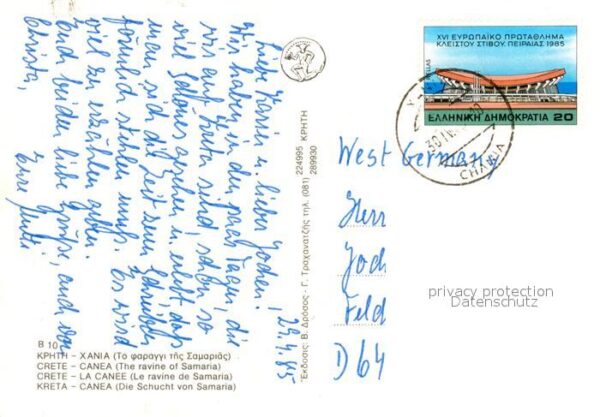 29.4.85
Liebe Karin u. lieber Jochen!
Wir haben in den paar Tagen, die
wir auf Kreta sind schon so
viel Schönes gesehen u. erlebt das
man sich die Zeit zum Schreiben
förmlich stehlen muß. Es wird
viel zu erzählen geben.
Euch beiden liebe Grüße, auch von
Christa,
Eure Mutti.
B 10
ΚΡΗΤΗ – ΧΑΝΙΑ (Το φαραγγι τῆς Σαμαριᾶς)
CRETE – CANEA (The ravine of Samaria)
CRETE – LA CANEE (Le ravine de Samaria)
KRETA – CANEA (Die Schucht von Samaria)
Ἔκδοσις: Β. Δρόσος - Γ. Τραχανατζῆς τηλ. (081) 224995 ΚΡΗΤΗ
289930
XVI ΕΥΡΩΠΑΪΚΟ ΠΡΩΤΑΘΛΗΜΑ
ΚΛΕΙΣΤΟΥ ΣΤΙΒΟΥ, ΠΕΙΡΑΙΑΣ 1985
HELLAS
ΕΛΛΗΝΙΚΗ ΔΗΜΟΚΡΑΤΙΑ 20
CHANIA
West Germany
Herr
Joch
Feld
D 64
privacy protection
Datenschutz